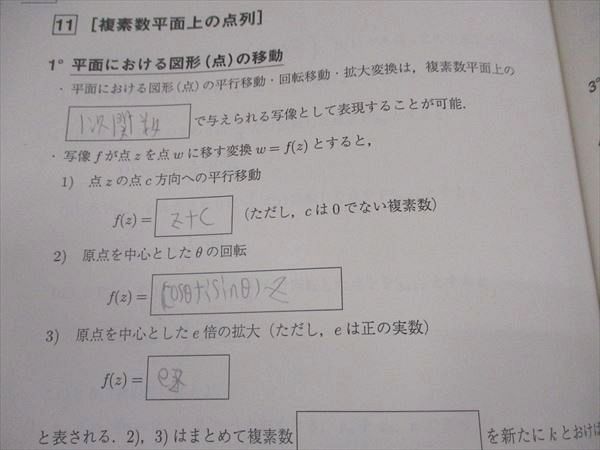 11 [複素数平面上の点列]
1° 平面における図形(点)の移動
・平面における図形(点)の平行移動・回転移動・拡大変換は,複素数平面上の
1次関数 で与えられる写像として表現することが可能.
・写像 f が点 z を点 w に移す変換 w = f(z) とすると,
1) 点 z の点 c 方向への平行移動
f(z) = z+c (ただし,c は 0 でない複素数)
2) 原点を中心とした θ の回転
f(z) = (cosθ+isinθ)z
3) 原点を中心とした e 倍の拡大(ただし,e は正の実数)
f(z) = ez
と表される.2),3) はまとめて複素数 を新たに k とおけば
3°